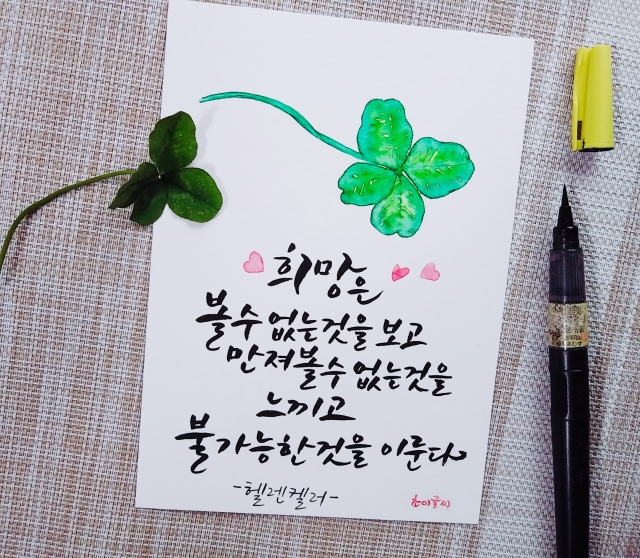 희망은
볼수없는것을 보고
만져볼수없는것을
느끼고
불가능한것을 이룬다
-헬렌켈러-